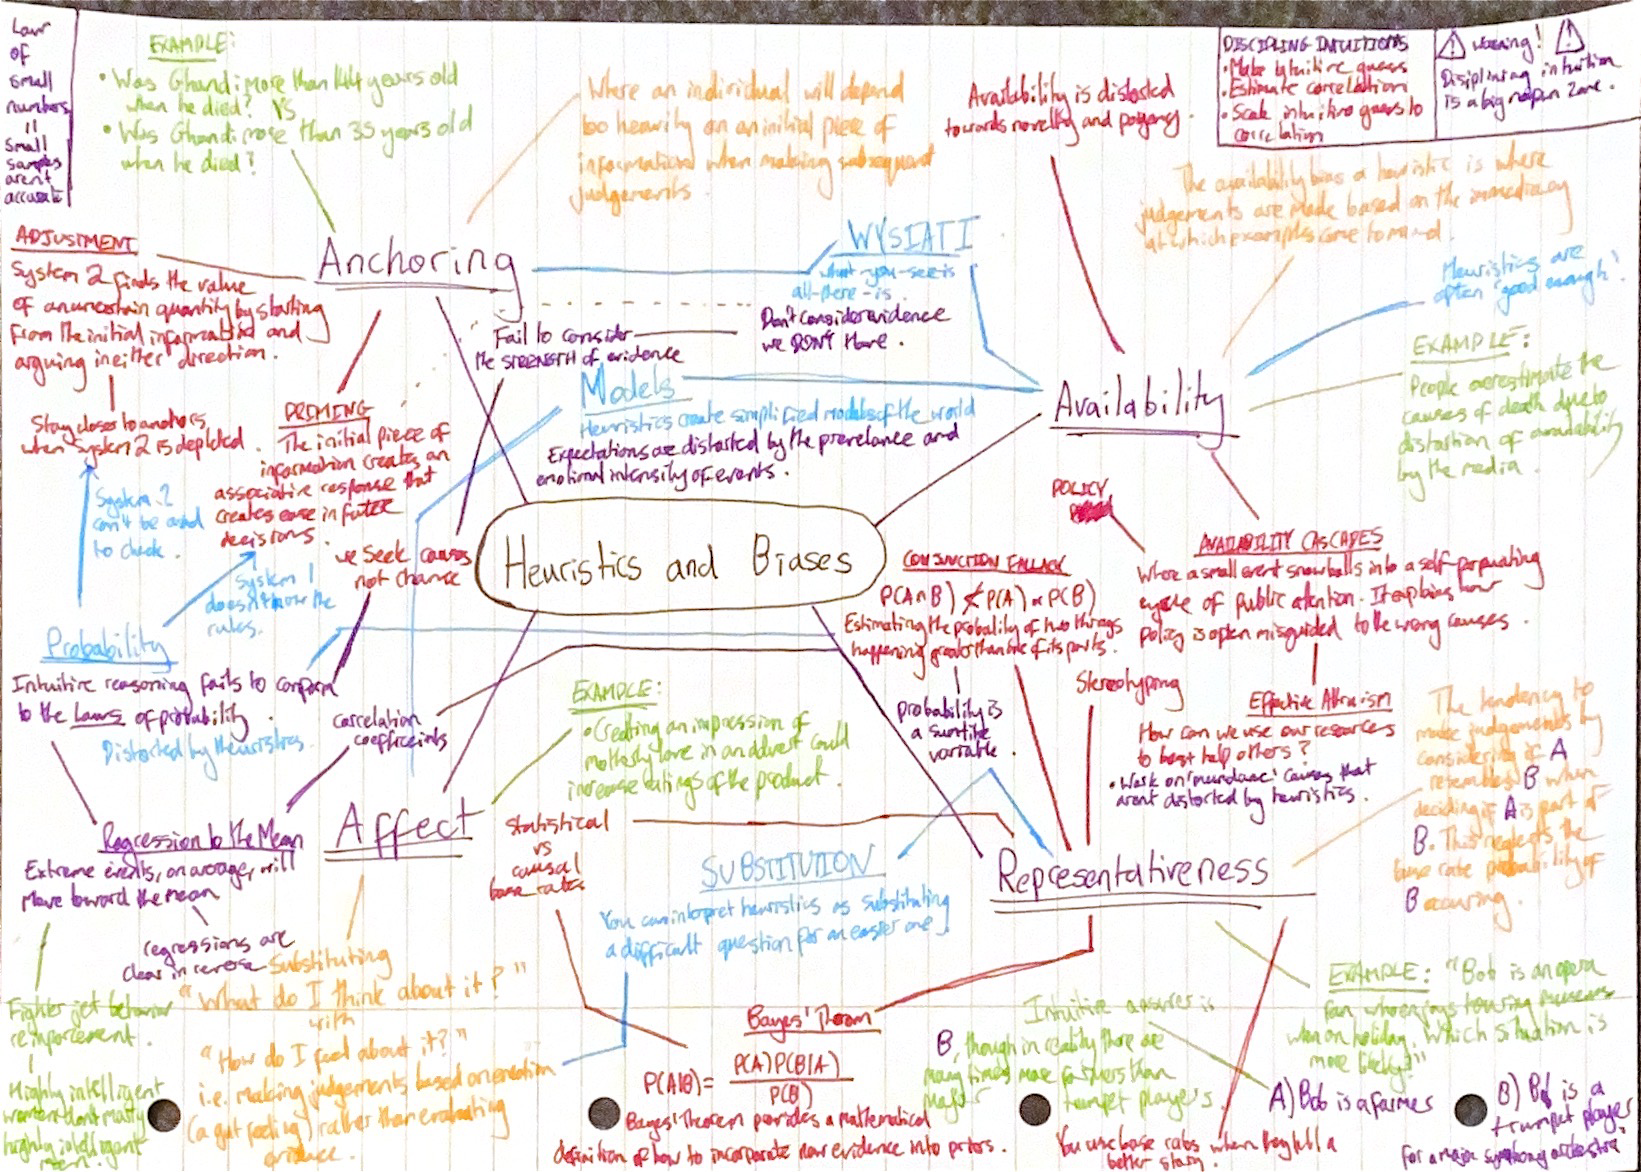 Law
of
small
numbers
=
small
samples
aren't
accurate
EXAMPLE:
• Was Ghandi more than 144 years old
when he died? VS
• Was Ghandi more than 35 years old
when he died?
Where an individual will depend
too heavily on an initial piece of
information when making subsequent
judgements.
Availability is distorted
towards novelty and poignancy.
DISCIPLING INTUITIONS
• Make intuitive guess
• Estimate correlation
• Scale intuitive guess to
correlation
Warning!
Disiplining intuition
is a big no fun zone.
The availability bias a heuristic is where
judgements are made based on the immediacy
at which examples come to mind.
ADJUSTMENT
System 2 finds the value
of an uncertain quantity by starting
from the initial information and
arguing in either direction.
Stay closer to anchors
when System 2 is depleted.
Anchoring
WYSIATI
what-you-see-is
all-there-is.
Fail to consider
the STRENGTH of evidence
Don't consider evidence
we DON'T Have.
Heuristics are
often "good enough".
EXAMPLE:
People overestimate the
causes of death due to
distortion of availability
by the media.
Models
Heuristics create simplified models of the world
Expectations are distorted by the prevelance and
emotional intensity of events.
Availability
PRIMING
The initial piece of
information creates an
associative response that
creates ease in future
decisions.
System 2
can't be
to check.
System 1
doesn't know the
rules.
we seek causes
not chance
Heuristics and Biases
POLICY
AVAILABILITY CASCADES
Where a small event snowballs into a self-perpuating
cycle of public attention. It explains how
policy is often misguided to the wrong causes.
CONJUNCTION FALLACY
P(A∩B) ≮ P(A) or P(B)
Estimating the probality of two things
happening greater than one of its parts.
probability is
a surtite
variable.
Stereotyping
Effective Altruism
How can we use our resources
to best help others?
• Work on 'mundane' causes that
aren't distorted by heuristics.
The tendency to
make judgements by
considering if A
resembles B when
deciding if A is part of
B. This neglects the
base rate probability of
B occuring.
Probability
Intuitive reasoning fails to conform
to the Laws of probability.
Distorted by Heuristics.
correlation
coefficeints
EXAMPLE:
• Creating an impression of
motherly love in an advert could
increase ratings of the product.
Regression to the Mean
Extreme events, on average, will
Move toward the mean
regressions are
clear in reverse
Fighter jet behavior
reinforcement.
Highly intelligent
women don't marry
highly intelligent
men.
Affect
Substituting
"What do I think about it?"
with
"How do I feel about it?"
i.e. making judgements based on emotion
(a gut feeling) rather than evaluating
evidence.
Statistical
vs
causal
base rates
SUBSTITUTION
You can interpret heuristics as substituting
a difficult question for an easier one.
Representativeness
Bayes' Theorm
P(A|B) = P(A)P(B|A)
P(B)
Bayes' Theorem provides a mathematical
definition of how to incorporate new evidence into priors.
EXAMPLE: "Bob is an opera
fan who enjoys touring museums
when on holiday. Which situation is
more likely?"
A) Bob is a farmer
B) Bob is a
trumpet player
for a major symphony orchestra
Intuitive answer is
B, though in reality there are
many times more farmers than
major trumpet players.
You use base rates when they tell a
better story.